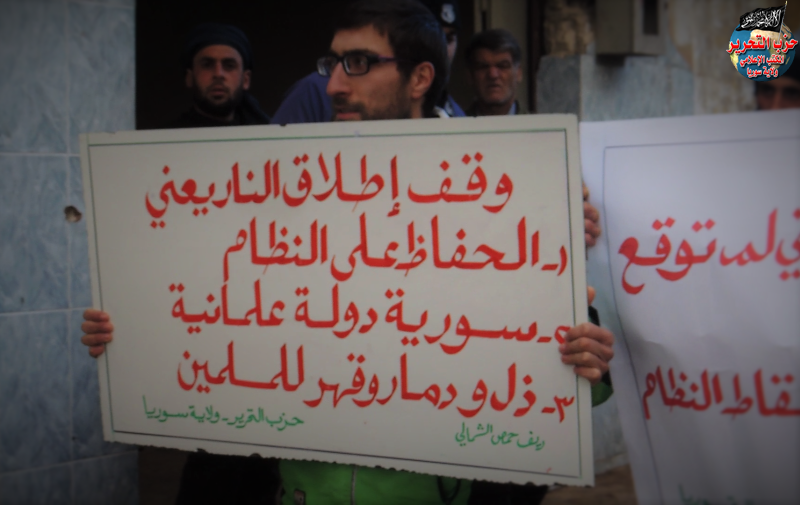 حزب التحرير
المكتب الإعلامي
ولاية سوريا
وقف إطلاق النار يعني
١- الحفاظ على النظام
٢- سورية دولة علمانية
٣- ذل ودمار وقهر للمسلمين
حزب التحرير - ولاية سوريا
ريف حمص الشمالي
لم توقع
النظام